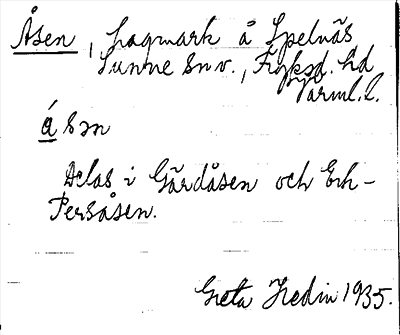 Åsen, hagmark å Spelnäs
Sunne sn v., Fryksd. hd
Värml. l.
ǻsən
Delas i Gårdåsen och Erk-
Persåsen.
Greta Hedin 1935.